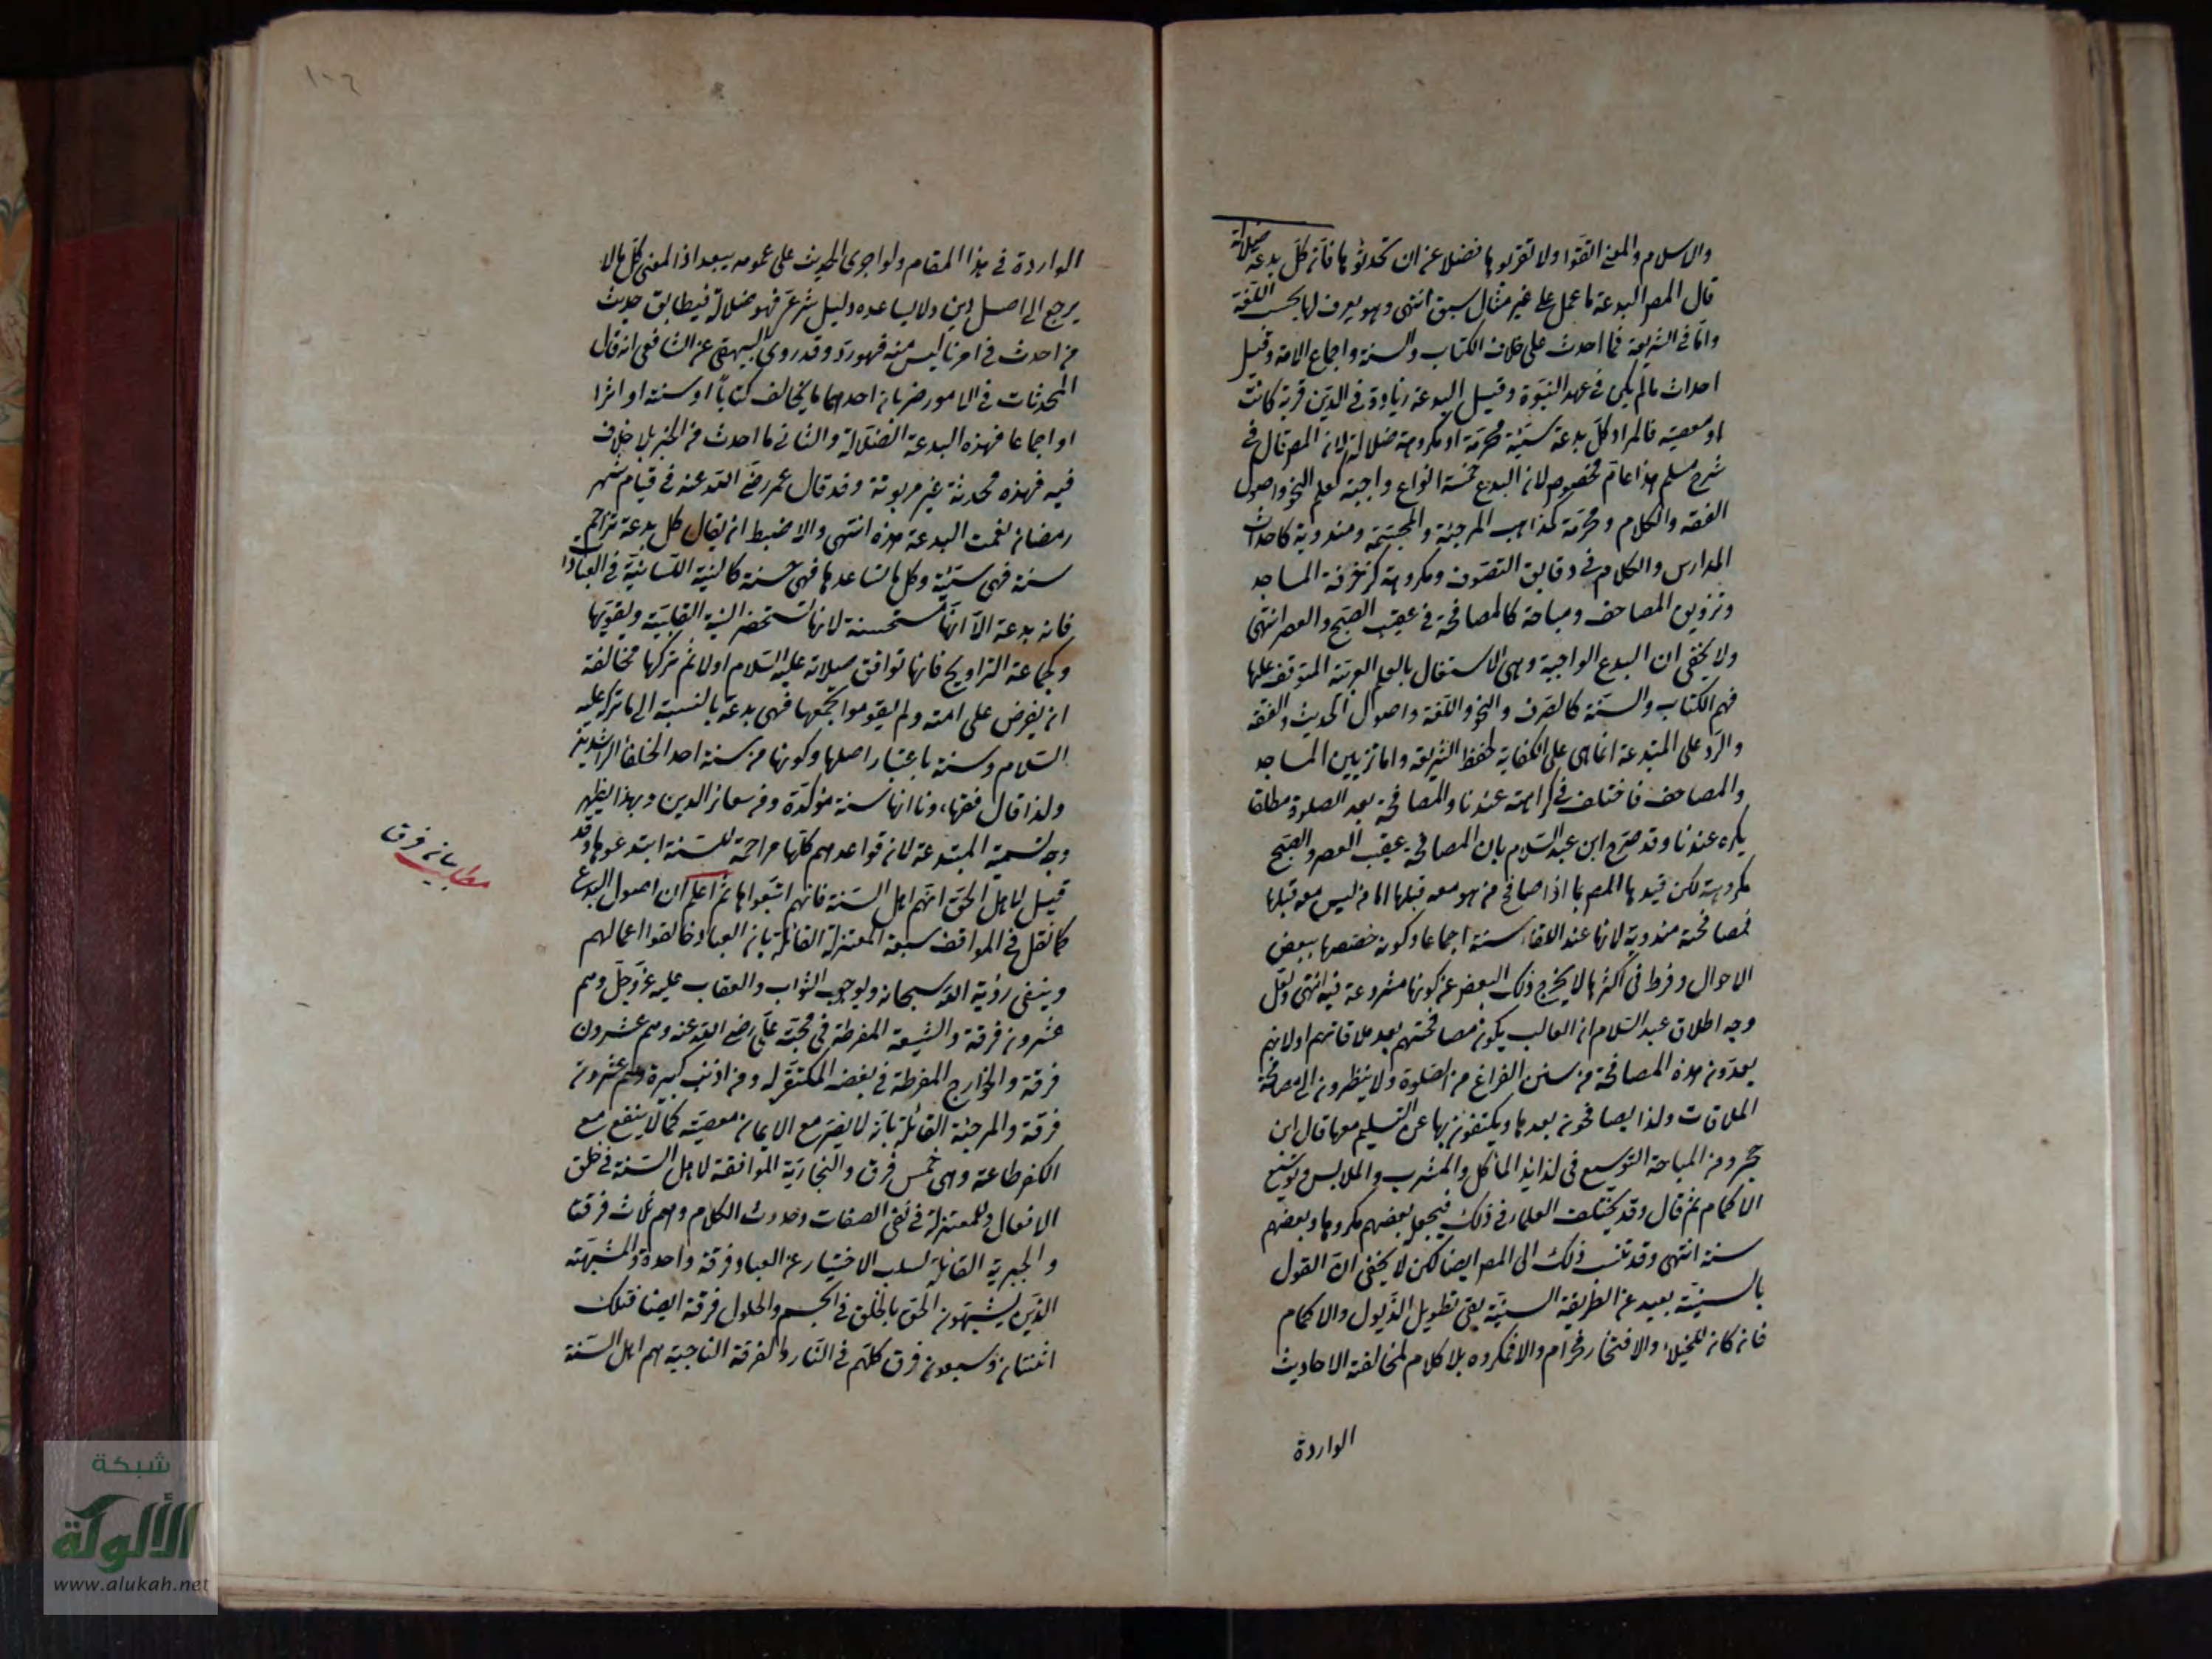 والاسلام والمعنى اتقوا ولا تقربوها فضلا عن ان تحدثوها فان كل بدعة ضلالة
قال المص البدعة ما عمل على غير مثال سبق انتهى وهو يعرف لها بحسب اللغة
واما في الشريعة فما احدث على خلاف الكتاب والسنة واجماع الامة وقيل
احداث ما لم يكن في عهد النبوة وقيل البدعة زيادة في الدين قربة كانت
او معصية فالمراد كل بدعة سيئة محرمة او مكروهة ضلالة لان المص قال في
شرح مسلم هذا عام مخصوص لان البدع خمسة انواع واجبة كعلم النحو واصول
الفقه والكلام ومحرمة كمذاهب المرجئة والمجسمة ومندوبة كاحداث
المدارس والكلام في دقايق التصوف ومكروهة كزخرفة المساجد
وتزويق المصاحف ومباحة كالمصافحة في عقيب الصبح والعصر انتهى
ولا يخفى ان البدع الواجبة وهي الاشتغال بالعلم العربية المتوقف عليها
فهم الكتاب والسنة كالصرف والنحو واللغة واصول الحديث والفقه
والرد على المبتدعة انما هي على الكفاية لحفظ الشريعة واما تزيين المساجد
والمصاحف فاختلف في كراهته عندنا والمصافحة بعد الصلوة مطلقا
يكره عندنا وقد صرح ابن عبد السلام بان المصافحة عقيب العصر والصبح
مكروهة لكن قيدها المص بما اذا صافح من هو معه قبلها اما من ليس معه قبلها
فمصافحته مندوبة لانها عند اللقاء سنة اجماعا وكونه خصصها ببعض
الاحوال وفرط في اكثرها لا يخرج ذلك البعض عن كونها مشروعة فيه انتهى ولعل
وجه اطلاق عبد السلام ان الغالب يكون مصافحتهم بعد ملاقاتهم اولا انهم
يعدون هذه المصافحة من سنن الفراغ من الصلوة ولا ينظرون الى مصافحة
الملاقات ولذا يصافحون بعدها ويكتفون بها عن التسليم معها قال ابن
حجر ومن المباحة التوسع في لذائذ المأكل والمشرب والملابس وتوسيع
الاكمام ثم قال وقد يختلف العلماء في ذلك فيجعل بعضهم مكروها وبعضهم
سنة انتهى وقد نسب ذلك الى المص ايضا لكن لا يخفى ان القول
بالسنية بعيد عن الطريقة السنية بقي تطويل الذيول والاكمام
فان كان للخيلاء والافتخار فحرام والا فمكروه بلا كلام لمخالفة الاحاديث
الواردة
١٠٦
الواردة في هذا المقام ولو اجرى الحديث على عمومه يبعد اذ المعنى كل ما لا
يرجع الى اصل دين ولا يساعده دليل شرعي فهو ضلالة فيطابق حديث
من احدث في امرنا ليس منه فهو رد وقد روى البيهقي عن الشافعي انه قال
المحدثات في الامور ضربان احدهما ما يخالف كتابا او سنة او اثرا
او اجماعا فهذه البدعة الضلالة والثاني ما احدث من الخير بلا خلاف
فيه فهذه محدثة غير مربوثة وقد قال عمر رضي الله عنه في قيام شهر
رمضان نعمت البدعة هذه انتهى والاضبط ان يقال كل بدعة تزاحم
سنة فهي سيئة وكل ما تساعدها فهي حسنة كالنية اللسانية في العبادا
فانه بدعة الا انها مستحسنة لانها تستحضر النية القلبية ويقويها
وكجماعة التراويح فانها توافق صلاته عليه السلام اولا ثم تركها مخافة
ان يفرض على امته ولم يقوموا بجمعها فهي بدعة بالنسبة الى ما تركه عليه
السلام وسنة باعتبار اصلها وكونها من سنة احد الخلفاء الراشدين
ولذا قال فقهاءونا انها سنة مؤكدة ومن شعائر الدين وبهذا يظهر
وجه تسمية المبتدعة لان قواعدهم كلها مزاحمة للسنة ابتدعوها وقد
قيل لاهل الحق انهم اهل السنة فانهم اتبعوها ثم اعلم ان اصول البدع
كما نقل في المواقف سبعة المعتزلة القائلة بان العباد خالقوا اعمالهم
وينفي رؤية الله سبحانه وبوجوب الثواب والعقاب عليه عز وجل وهم
عشرون فرقة والشيعة المفرطة في محبة علي رضي الله عنه وهم عشرون
فرقة والخوارج المفرطة في بغضه المكفرة له ومن اذنب كبيرة وهم عشرون
فرقة والمرجئة القائلة بانه لا يضر مع الايمان معصية كما لا ينفع مع
الكفر طاعة وهي خمس فرق والنجارية الموافقة لاهل السنة في خلق
الافعال وللمعتزلة في نفي الصفات وحدوث الكلام وهم ثلاث فرقا
والجبرية القائلة بسلب الاختيار عن العباد فرقة واحدة والمشبهة
الذين يشبهون الحق بالخلق في الجسم والحلول فرقة ايضا فتلك
اثنتان وسبعون فرق كلهم في النار والفرقة الناجية هم اهل السنة
مطلب بيان فرق
شبكة
الألوكة
www.alukah.net